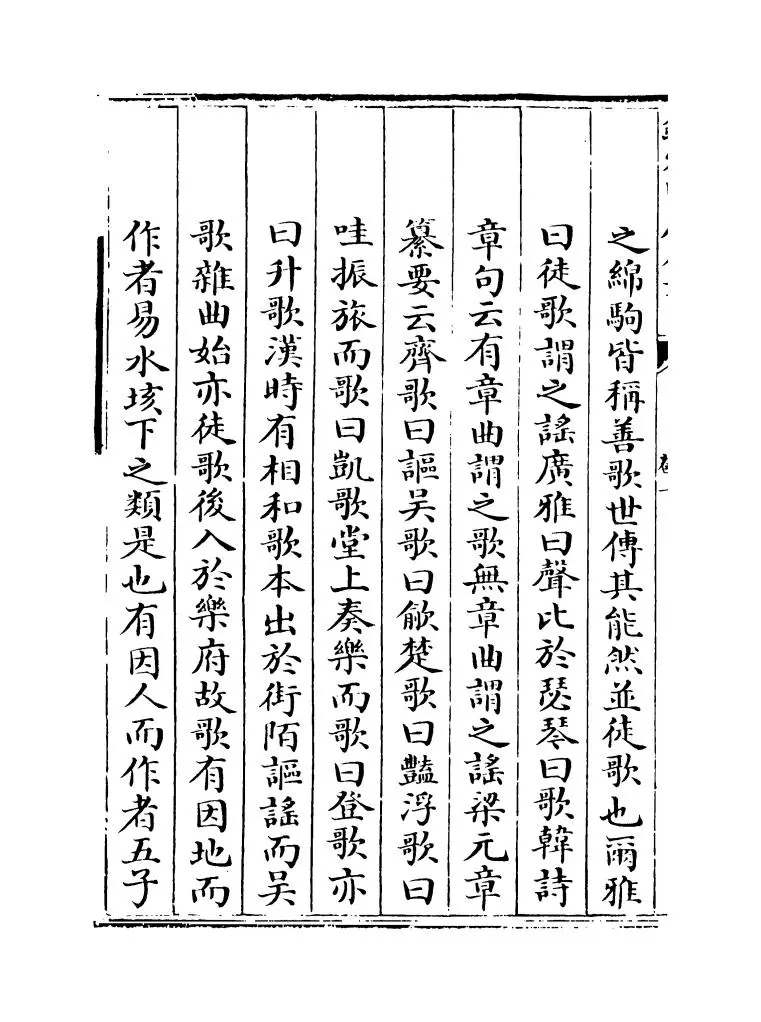 之綿駒皆稱善歌世傳其能然並徒歌也爾雅
曰徒歌謂之謠廣雅曰聲比於瑟琴曰歌韓詩
章句云有章曲謂之歌無章曲謂之謠梁元章
纂要云齊歌曰謳吴歌曰歈楚歌曰豔浮歌曰
哇振旅而歌曰凱歌堂上奏樂而歌曰登歌亦
曰升歌漢時有相和歌本出於街陌謳謠而吴
歌雜曲始亦徒歌後入於樂府故歌有因地而
作者易水垓下之類是也有因人而作者五子